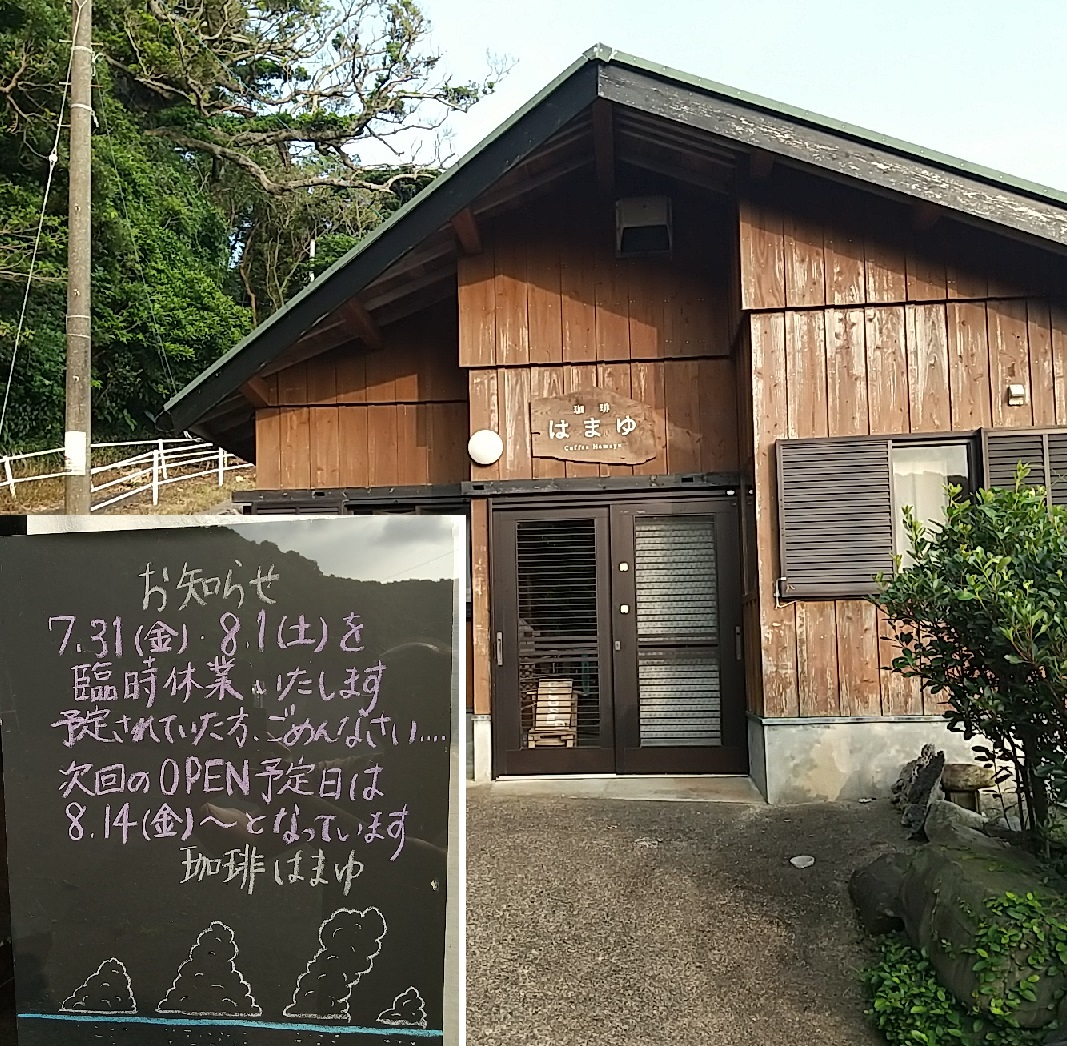 珈琲
はまゆ
Coffee Hamayu
お知らせ
7.31(金)・8.1(土)を
臨時休業いたします
予定されていた方、ごめんなさい....
次回のOPEN予定日は
8.14(金)〜となっています
珈琲はまゆ